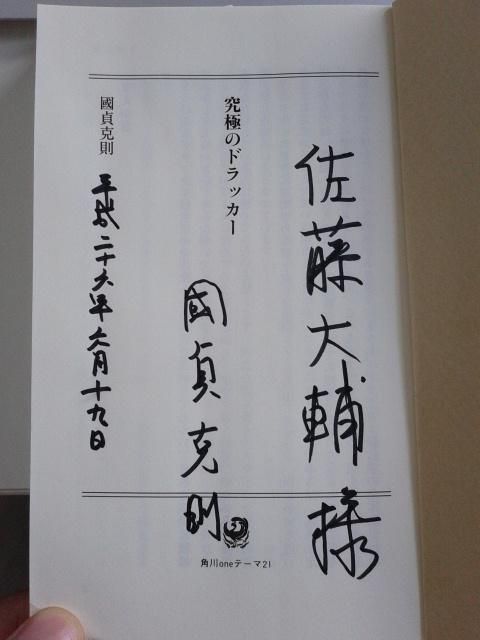 佐藤大輔様
究極のドラッカー
國貞克則
國貞克則
平成二十六年六月十九日
角川oneテーマ21